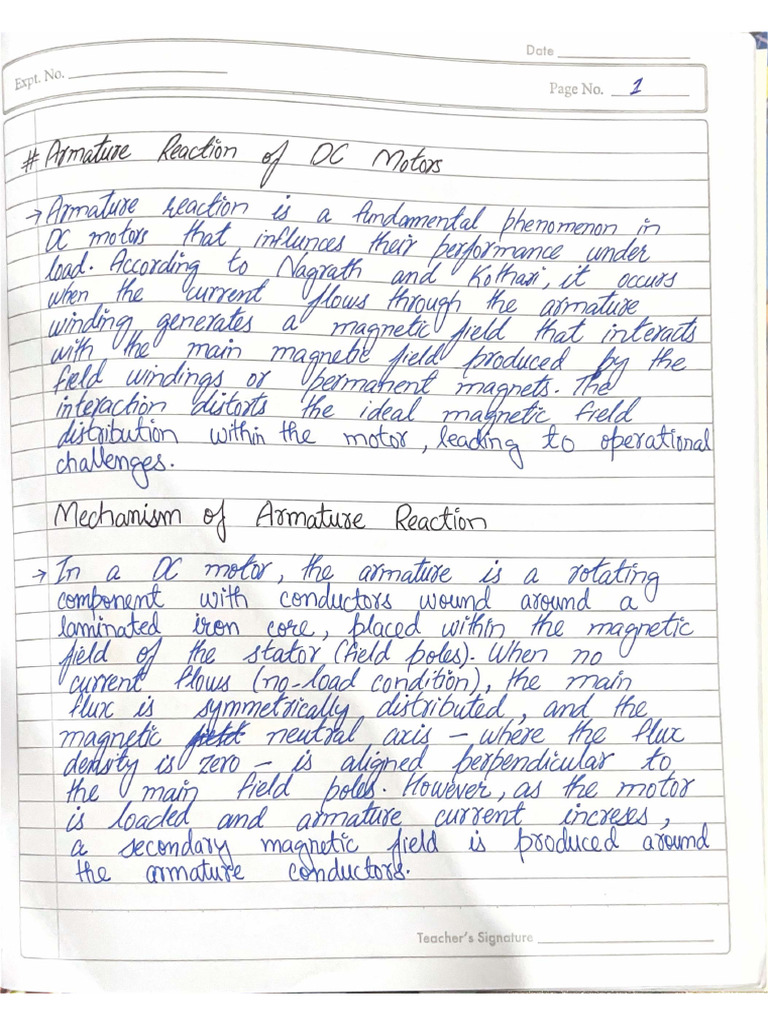 Date
Expt. No.
Page No. 1
# Armature Reaction of DC Motors
→ Armature reaction is a fundamental phenomenon in
DC motors that influnces their performance under
load. According to Nagrath and Kothari, it occurs
when the current flows through the armature
winding generates a magnetic field that interacts
with the main magnetic field produced by the
field windings or permanent magnets. The
interaction distorts the ideal magnetic field
distribution within the motor, leading to operational
challenges.
Mechanism of Armature Reaction
→ In a DC motor, the armature is a rotating
component with conductors wound around a
laminated iron core, placed within the magnetic
field of the stator (field poles). When no
current flows (no-load condition), the main
flux is symmetrically distributed, and the
magnetic neutral axis – where the flux
density is zero – is aligned perpendicular to
the main field poles. However, as the motor
is loaded and armature current increses,
a secondary magnetic field is produced around
the armature conductors.
Teacher's Signature